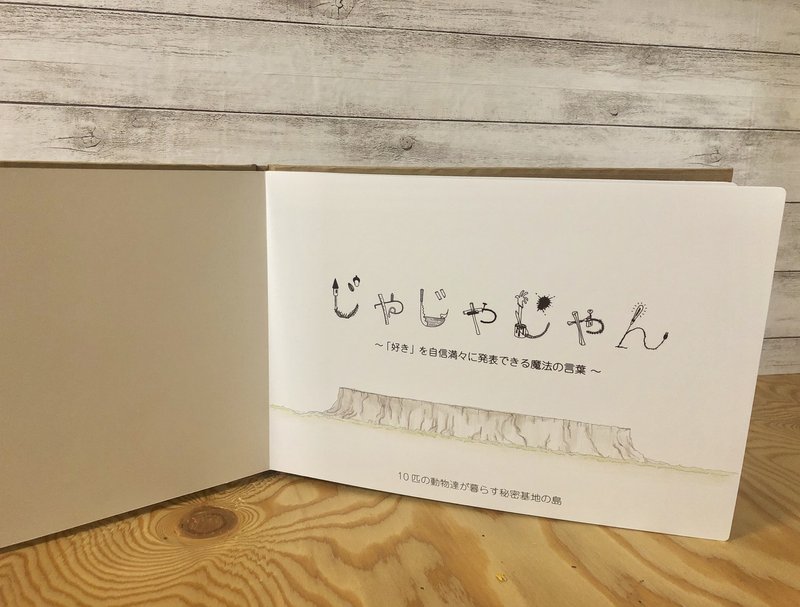 じゃじゃじゃん
～「好き」を自信満々に発表できる魔法の言葉～
10匹の動物達が暮らす秘密基地の島